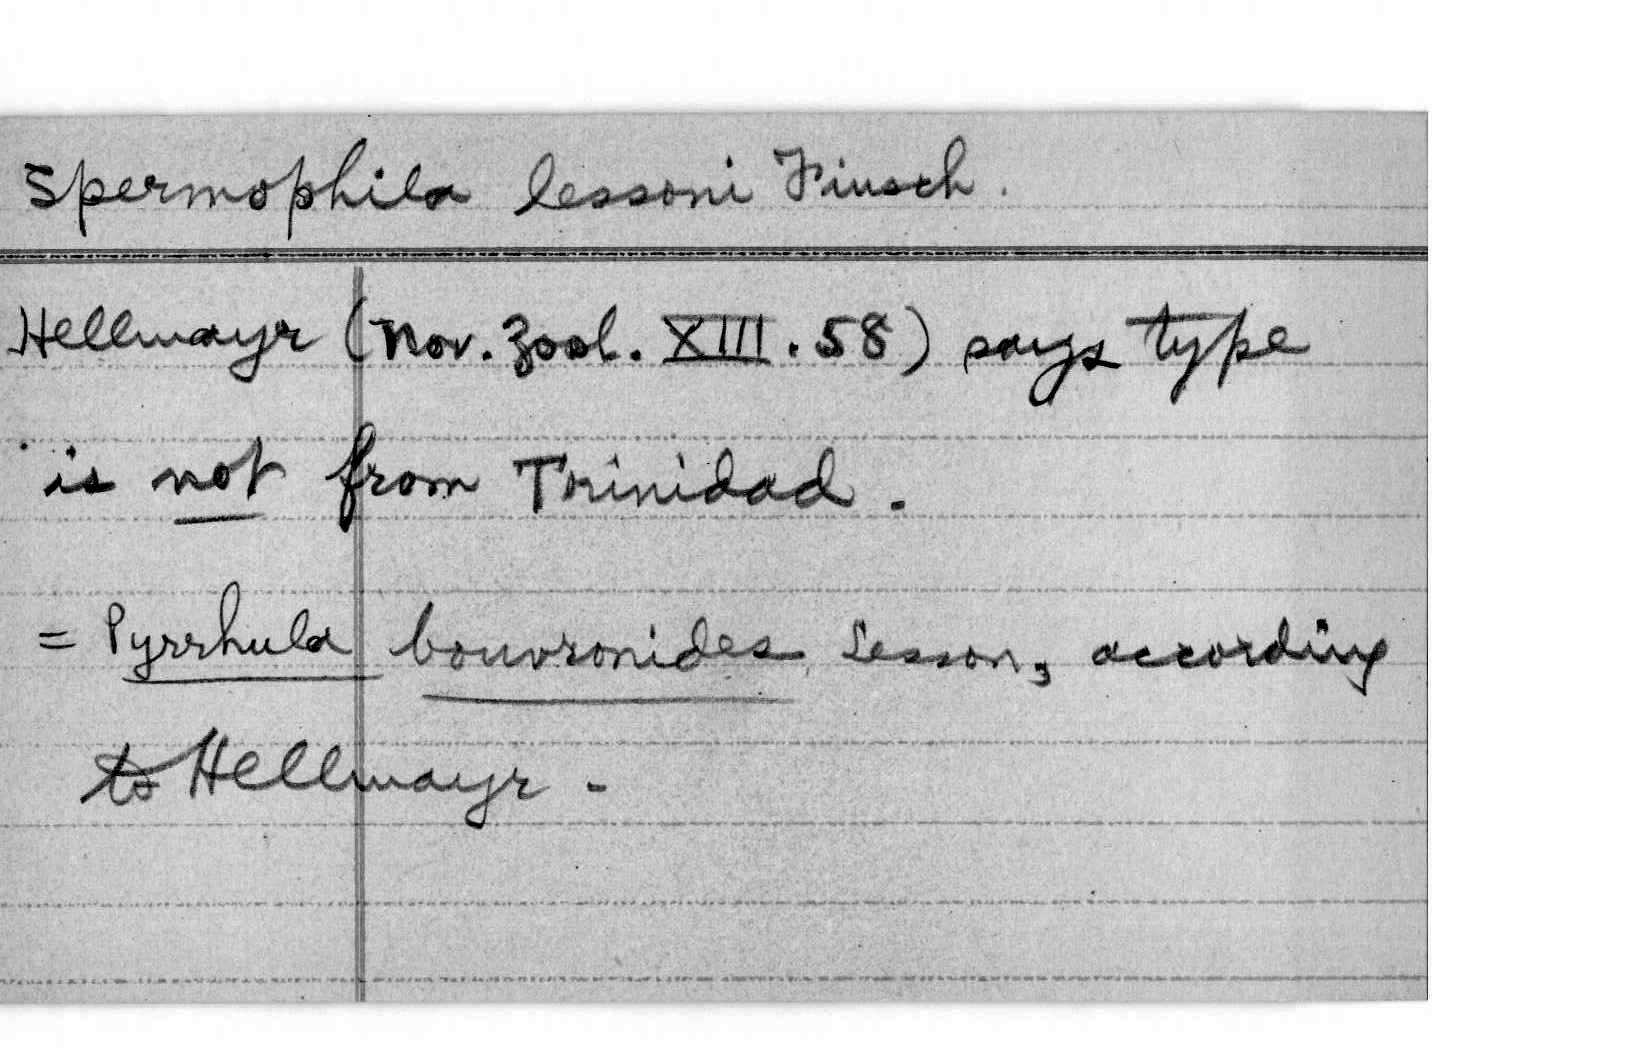 Spermophila lessoni Finsch.
Hellmayr (Nov. Zool. XIII. 58) says type
is not from Trinidad.
= Pyrrhula bouvronides Lesson, according
to Hellmayr.